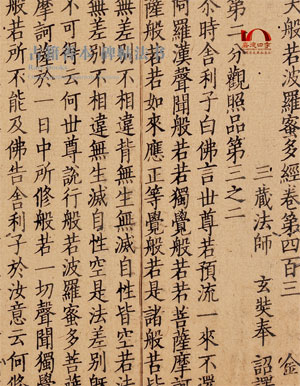 金
大般若波羅蜜多經卷第四百三
三藏法師 玄奘奉 詔譯
第二分觀照品第三之二
尒時舍利子白佛言世尊若預流一來不
阿羅漢聲聞般若若獨覺般若若菩薩摩訶
薩般若若如來應正等覺般若是諸般若皆
無差別不相違背無生無滅自性皆空若法
無差別不相違無生滅自性空是法差別
云何世尊說行般若波羅蜜多菩薩
摩訶薩一日中所修般若一切聲聞獨覺
般若所不能及佛告舍利子於汝意云何修
嘉德四季
古籍善本 碑帖法书